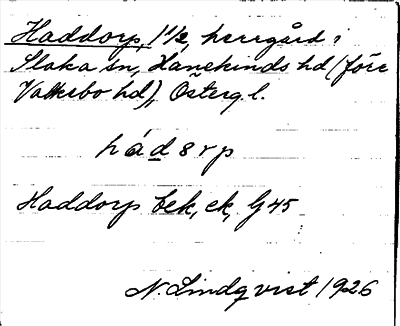 Haddorp, 1 1/2, herrgård i
Slaka sn, Hanekinds hd (förr
Valkebo hd), Österg. l.
hádsrp
Haddorp Eek, ek, G 45
N. Lindqvist 1926